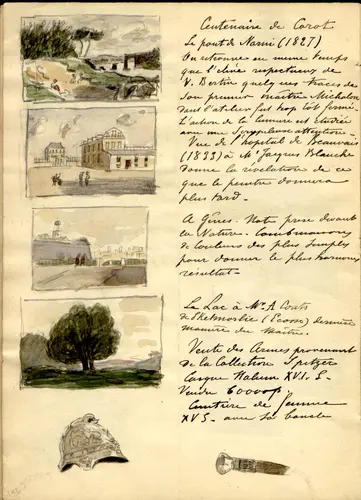 Centenaire de Corot
Le pont de Narni (1827)
On retrouve en même temps
que l'élève respectueux de
V. Bertin quelques traces de
son premier maître Michalon
dont l'atelier fut trop tôt fermé.
L'action de la lumière est étudiée
avec une scrupuleuse attention.
Vue de l'hôpital de Beauvais
(1822) à Mr Jacques Blanche
donne la révélation de ce
que le peintre donnera
plus tard.
A Gênes. Note prise devant
la Nature. Combinaisons
de couleurs des plus simples
pour donner le plus harmonieux
résultat.
Le Lac à Mr A Coats
de Skelmorlie (Ecosse) dernière
manière du Maître.
Vente des Armes provenant
de la Collection Spitzer
Casque Italien XVI. S.
Vendu 60000f.
Ceinture de Femme
XV S. avec sa boucle